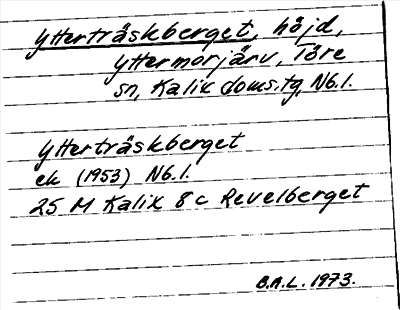 Ytterträskberget, höjd,
Yttermorjärv, Töre
sn, Kalix doms.tg, Nb.l.
Ytterträskberget
ek (1953) Nb.l.
25 M Kalix 8 c Revelberget
B.A.L. 1973.